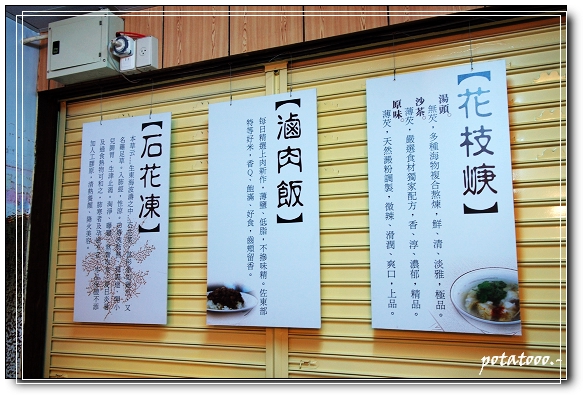 【花枝焿】
湯頭。
無芡，多種海物複合熬煉，鮮、清、淡雅，極品。
沙茶。
薄芡，嚴選食材獨家配方，香、淳、濃郁，精品。
原味。
薄芡，天然澱粉調製，微辣、滑潤、爽口，上品。
【滷肉飯】
每日精選上肉新作，薄鹽、低脂，不滲味精。佐東部
特等好米，香Q、飽滿、好食，齒頰留香。
【石花凍】
本草云：生東海波濤之中
加入工膠原，清熱養顏、降火美容。
potatooo.~